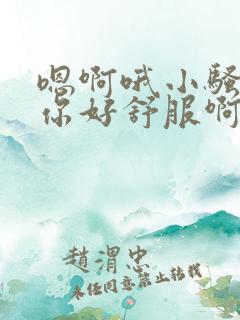 嗯啊哦小骚
你好舒服啊
赵渭忠
未经同意禁止转载